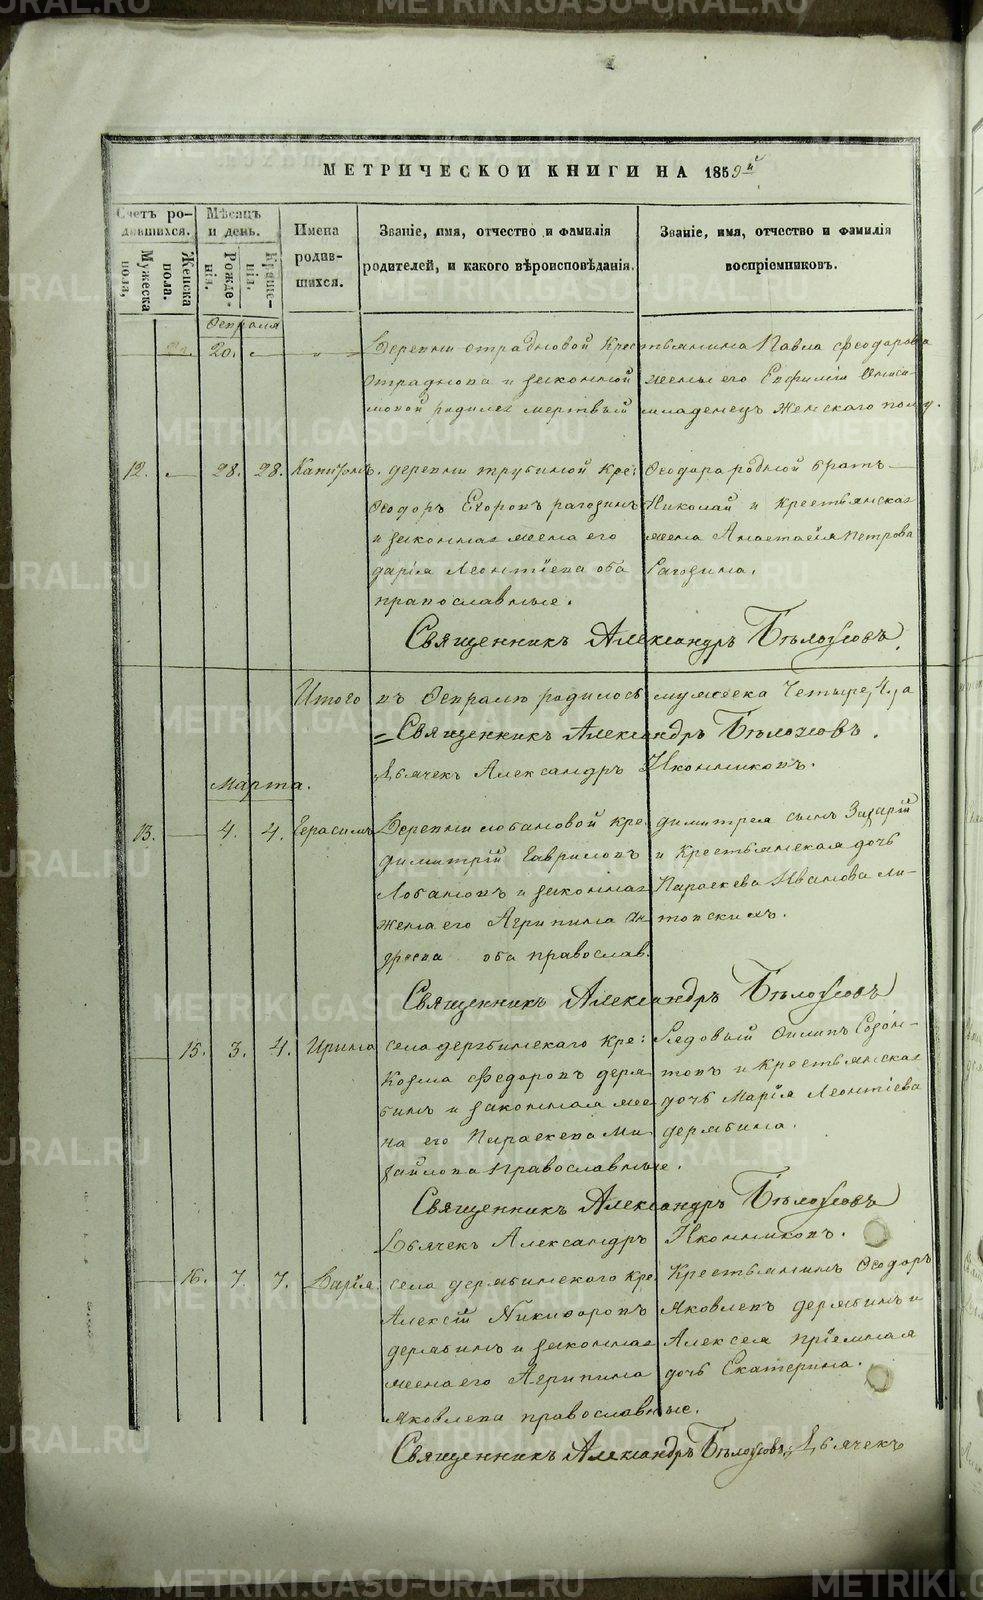 METRIKI.GASO-URAL.RU
МЕТРИЧЕСКОЙ КНИГИ НА 1859й
Счетъ родившихся.
Мѣсяцъ и день.
Имена родившихся.
Званіе, имя, отчество и фамилія родителей, и какого вѣроисповѣданія.
Званіе, имя, отчество и фамилія воспріемниковъ.
Мужеска пола.
Женска пола.
Рожденія.
Крещенія.
Февраля
20. Деревни отрадновой крестьянина Павла Феодорова
Отраднова и законной жены его Евфиміи Ониси-
мовой родился мертвый младенецъ женскаго полу.
12. 28. 28. Капитонъ. деревни трубиной кре: Ѳеодора родной братъ
Ѳеодоръ Егоровъ рагозинъ Николай и крестьянская
и законная жена его жена Анастасія Петрова
дарія Леонтіева оба Рагозина.
православные.
Священникъ Александръ Бѣлоусовъ.
Итого въ Февралѣ родилось мужеска Четыре, 4, а
Священникъ Александръ Бѣлоусовъ.
Дьячекъ Александръ Иконниковъ.
Марта.
13. 4. 4. Герасимъ Деревни лобановой кре. димитрея сынъ Захарій
димитрій Гавриловъ и крестьянская дочь
Лобановъ и законная Параскева Иванова Ли-
жена его Агрипина Ан товскихъ.
дреева оба православ.
Священникъ Александръ Бѣлоусовъ
15. 3. 4. Ирина села дерябинскаго кре: Рядовый Филипъ Созон-
Козма Федоровъ деря- товъ и крестьянская
бинъ и законная же дочь Марія Леонтіева
на его Параскева Ми- дерябина.
хайлова Православные.
Священникъ Александръ Бѣлоусовъ
Дьячекъ Александръ Иконниковъ.
16. 7. 7. Дарія села дерябинского кре. Крестьянинъ Ѳеодоръ
Алексій Никифоровъ Яковлевъ дерябинъ и
дерябинъ и законная Алексея пріемная
жена его Агрипина дочь Екатерина.
Яковлева православные.
Священникъ Александръ Бѣлоусовъ, Дьячекъ